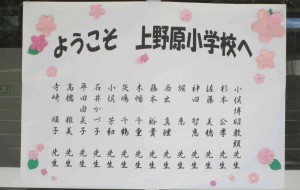 ようこそ 上野原小学校へ
小俣博昭教頭先生
杉本 公孝 先生
佐藤 美穂 先生
神田 智恵 先生
堀 恵 先生
西山 真理 先生
藤本 裕貴 先生
木幡 千重 先生
矢嶋 千鶴 先生
小俣 芳和 先生
石井かづ子 先生
平田由美子 先生
高橋 雅美 先生
寺崎 順子 先生